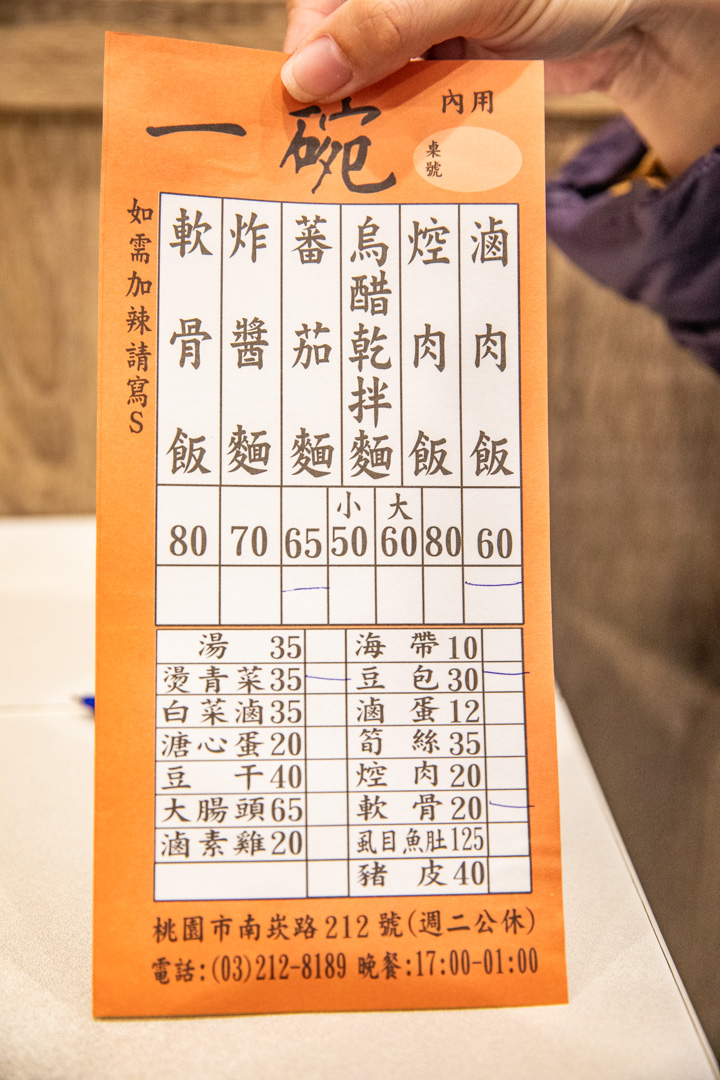 一碗
內用
桌號
如需加辣請寫S
滷肉飯
焢肉飯
烏醋乾拌麵
蕃茄麵
炸醬麵
軟骨飯
80 70 65 小50 大60 80 60
湯 35 海帶 10
燙青菜 35 豆包 30
白菜滷 35 滷蛋 12
溏心蛋 20 筍絲 35
豆干 40 焢肉 20
大腸頭 65 軟骨 20
滷素雞 20 虱目魚肚 125
豬皮 40
桃園市南崁路212號(週二公休)
電話:(03)212-8189 晚餐:17:00-01:00